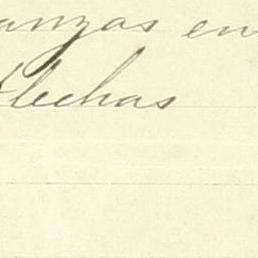 anzas en
Flechas